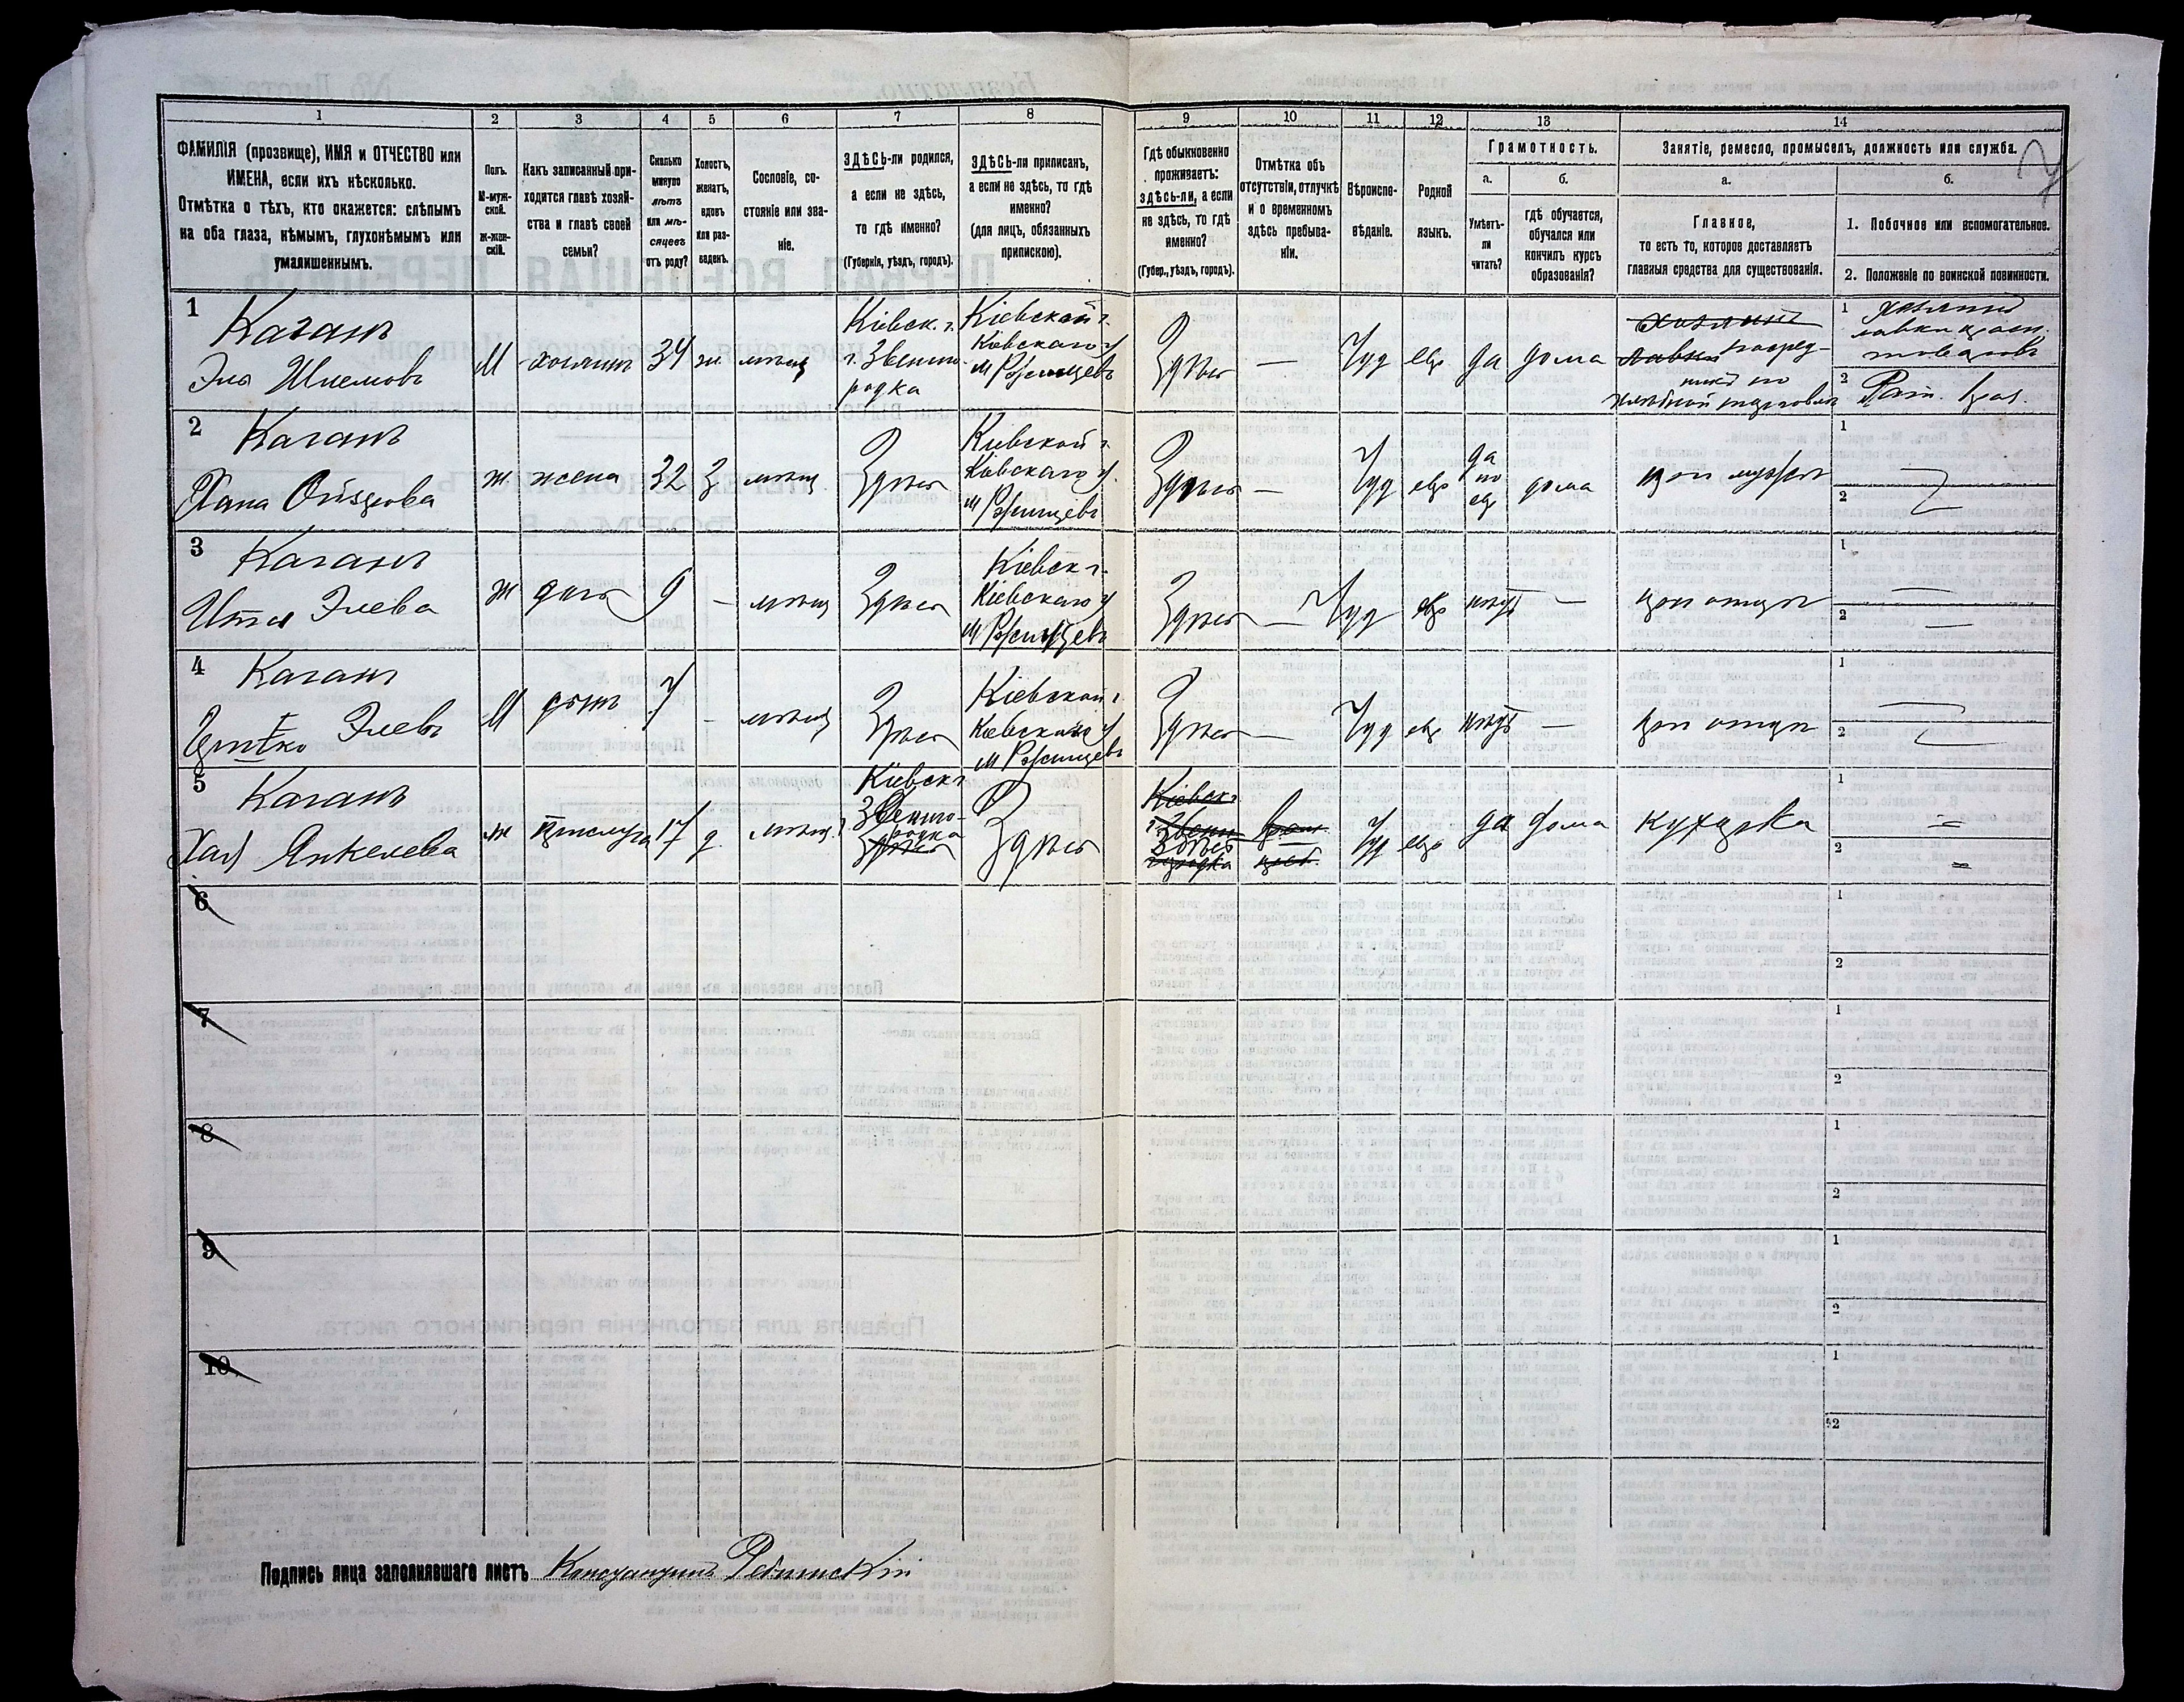 1 2 3 4 5 6 7 8 9 10 11 12 13 14
ФАМИЛІЯ (прозвище), ИМЯ и ОТЧЕСТВО или
ИМЕНА, если ихъ нѣсколько.
Отмѣтка о тѣхъ, кто окажется: слѣпымъ
на оба глаза, нѣмымъ, глухонѣмымъ или
умалишеннымъ.
Полъ.
М-муж-
ской.
Ж-жен-
скій.
Какъ записанный при-
ходится главѣ хозяй-
ства и главѣ своей
семьи?
Сколько
минуло
лѣтъ
или мѣ-
сяцевъ
отъ роду?
Холостъ,
женатъ,
вдовъ
или раз-
веденъ.
Сословіе, со-
стояніе или зва-
ніе.
ЗДѢСЬ-ли родился,
а если не здѣсь,
то гдѣ именно?
(Губернія, уѣздъ, городъ).
ЗДѢСЬ-ли приписанъ,
а если не здѣсь, то гдѣ
именно?
(для лицъ, обязанныхъ
припискою).
Гдѣ обыкновенно
проживаетъ:
здѣсь-ли, а если
не здѣсь, то гдѣ
именно?
(Губер., уѣздъ, городъ).
Отмѣтка объ
отсутствіи, отлучкѣ
и о временномъ
здѣсь пребыва-
ніи.
Вѣроиспо-
вѣданіе.
Родной
языкъ.
Грамотность.
а.
Умѣетъ-
ли
читать?
б.
гдѣ обучается,
обучался или
кончилъ курсъ
образованія?
Занятіе, ремесло, промыселъ, должность или служба.
а.
Главное,
то есть то, которое доставляетъ
главныя средства для существованія.
б.
1. Побочное или вспомогательное.
2. Положеніе по воинской повинности.
1
Каганъ
Эля Шлемовъ
М хозяинъ 34 ж. мѣщ
Кіевск. г.
г. Звениго-
родка
Кіевской г.
Кіевскаго у
м Ржищевъ
Здѣсь — Іуд евр да дома
хозяинъ
лавки посред-
никъ по
хлѣбной торговлѣ
1 хозяинъ
лавки
товаровъ
2
2
Каганъ
Хана
ж жена 32 З мѣщ
Здѣсь
Кіевской г.
Кіевскаго у.
м Ржищевъ
Здѣсь — Іуд евр
да
по
евр
дома при мужѣ
1
2
3
Каганъ
Итя Элева
ж дочь 9 — мѣщ
Здѣсь
Кіевск г.
Кіевскаго у
м Ржищевъ
Здѣсь — Іуд евр нѣтъ — при отцѣ
1
2
4
Каганъ
Элевъ
М сынъ 7 — мѣщ
Здѣсь
Кіевской г.
Кіевскаго у
м Ржищевъ
Здѣсь — Іуд евр нѣтъ — при отцѣ
1
2
5
Каганъ
Хая Янкелева
ж прислуга 17 д. мѣщ.
Кіевск г
Звениго-
родка
Здѣсь
Здѣсь
Кіевск г
Звени
Здѣсь
городка
—
Іуд евр да дома кухарка
1 =
2 =
6
1
2
7
1
2
8
1
2
9
1
2
10.
1
2
Подпись лица заполнявшаго листъ